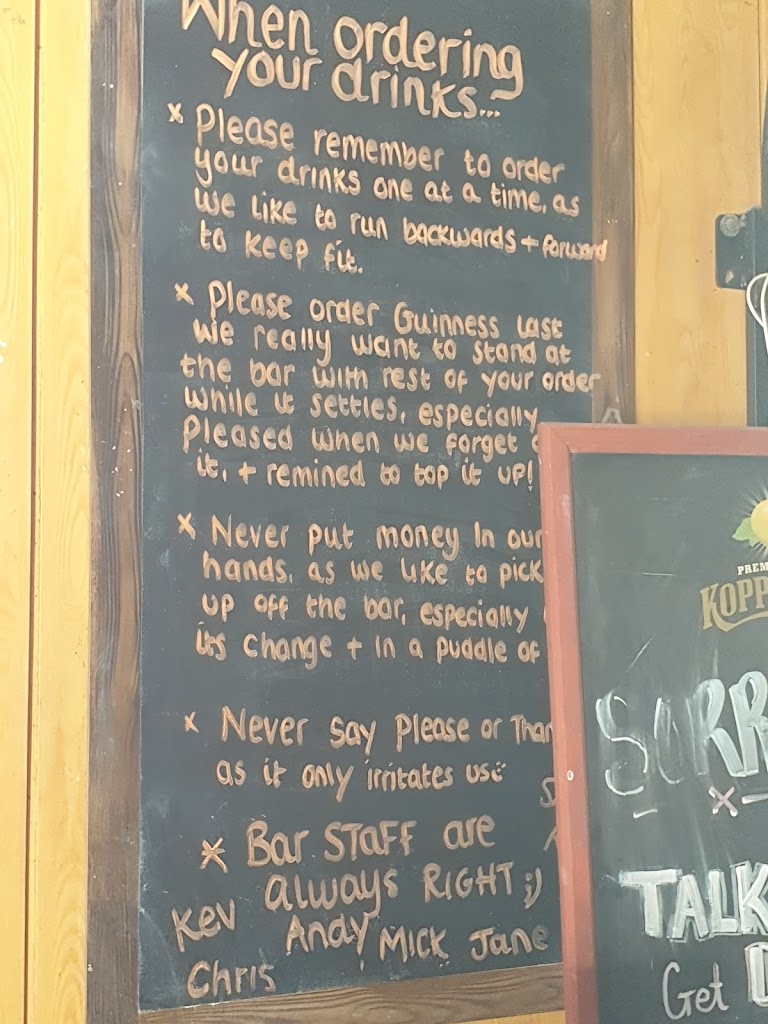 When ordering
your drinks...
x Please remember to order
your drinks one at a time, as
we like to run backwards + forward
to keep fit.
x Please order Guinness last
we really want to stand at
the bar with rest of your order
while it settles, especially
pleased when we forget
it, + remined to top it up!
x Never put money in our
hands, as we like to pick
up off the bar, especially
its change + in a puddle of
x Never say please or
as it only irritates us
x Bar STAFF are
always RIGHT ;)
Kev Andy Mick Jane
Chris
PREM
KOPP
SORR
x
TALK
Get